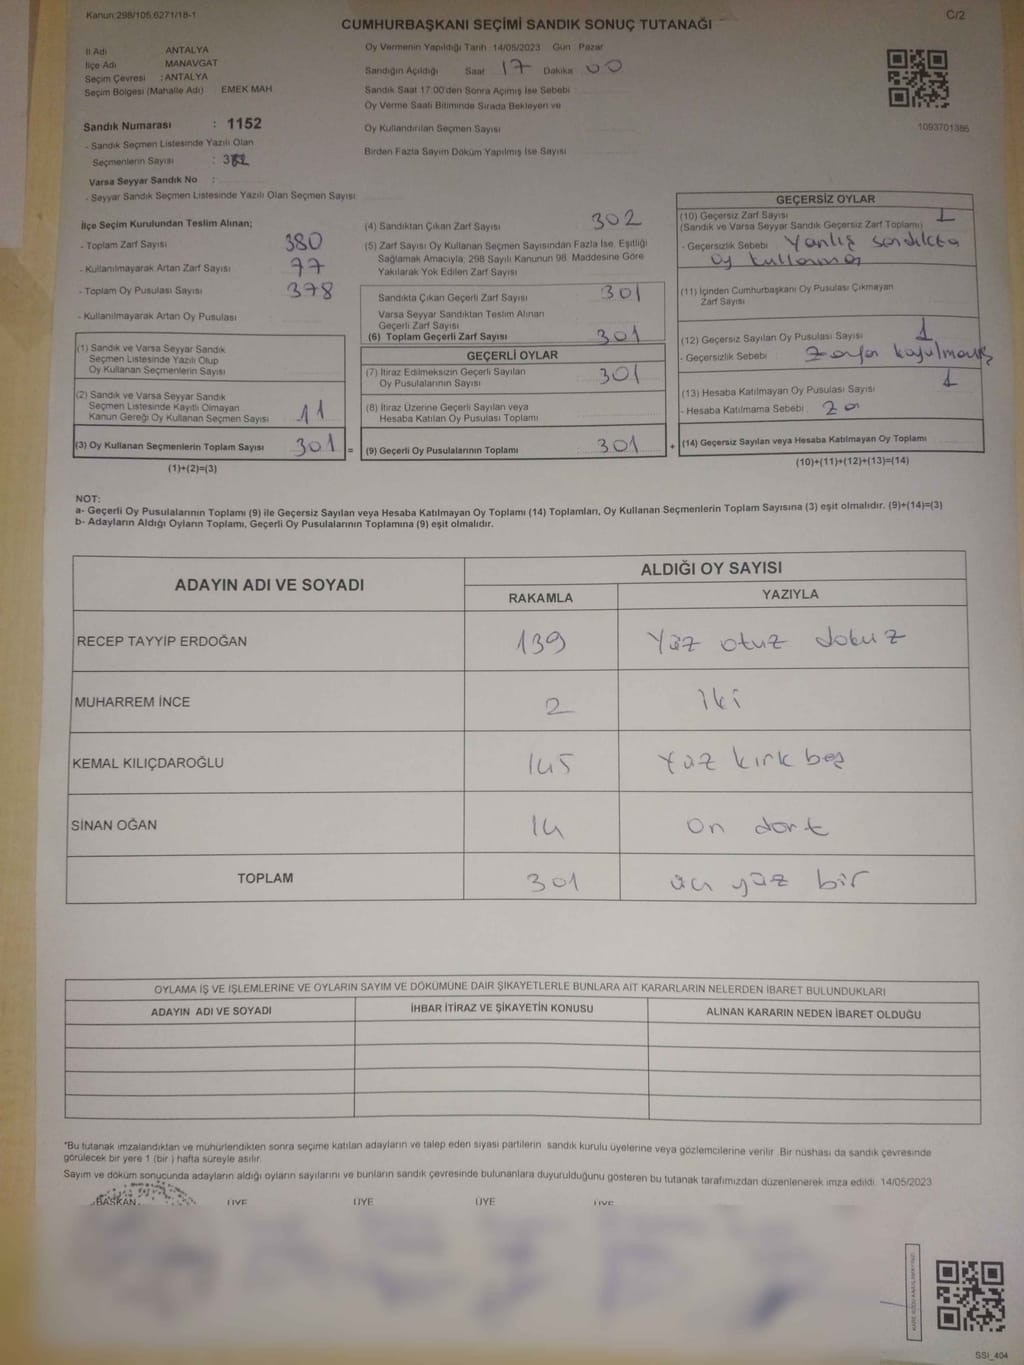 Kanun:298/105.6271/18-1
C/2
CUMHURBAŞKANI SEÇİMİ SANDIK SONUÇ TUTANAĞI
İl Adı ANTALYA
İlçe Adı MANAVGAT
Seçim Çevresi : ANTALYA
Seçim Bölgesi (Mahalle Adı) EMEK MAH
Sandık Numarası : 1152
- Sandık Seçmen Listesinde Yazılı Olan
Seçmenlerin Sayısı :
Varsa Seyyar Sandık No :
- Seyyar Sandık Seçmen Listesinde Yazılı Olan Seçmen Sayısı
Oy Vermenin Yapıldığı Tarih 14/05/2023 Gün : Pazar
Sandığın Açıldığı Saat 17 Dakika 00
Sandık Saat 17:00'den Sonra Açımış İse Sebebi
Oy Verme Saati Bitiminde Sırada Bekleyen ve
Oy Kullandırılan Seçmen Sayısı
Birden Fazla Sayım Döküm Yapılmış İse Sayısı
1093701386
İlçe Seçim Kurulundan Teslim Alınan;
- Toplam Zarf Sayısı 380
- Kullanılmayarak Artan Zarf Sayısı 77
- Toplam Oy Pusulası Sayısı 378
- Kullanılmayarak Artan Oy Pusulası :
(1) Sandık ve Varsa Seyyar Sandık
Seçmen Listesinde Yazılı Olup
Oy Kullanan Seçmenlerin Sayısı
(2) Sandık ve Varsa Seyyar Sandık
Seçmen Listesinde Kayıtlı Olmayan
Kanun Gereği Oy Kullanan Seçmen Sayısı 11
(3) Oy Kullanan Seçmenlerin Toplam Sayısı 301 =
(1)+(2)=(3)
(4) Sandıktan Çıkan Zarf Sayısı 302
(5) Zarf Sayısı Oy Kullanan Seçmen Sayısından Fazla İse, Eşitliği
Sağlamak Amacıyla; 298 Sayılı Kanunun 98. Maddesine Göre
Yakılarak Yok Edilen Zarf Sayısı
Sandıkta Çıkan Geçerli Zarf Sayısı 301
Varsa Seyyar Sandıktan Teslim Alınan
Geçerli Zarf Sayısı
(6) Toplam Geçerli Zarf Sayısı 301
GEÇERLİ OYLAR
(7) İtiraz Edilmeksizin Geçerli Sayılan
Oy Pusulalarının Sayısı 301
(8) İtiraz Üzerine Geçerli Sayılan veya
Hesaba Katılan Oy Pusulası Toplamı
(9) Geçerli Oy Pusulalarının Toplamı 301 +
GEÇERSİZ OYLAR
(10) Geçersiz Zarf Sayısı 1
(Sandık ve Varsa Seyyar Sandık Geçersiz Zarf Toplamı)
- Geçersizlik Sebebi Yanlış sandıkta
oy kullanma
(11) İçinden Cumhurbaşkanı Oy Pusulası Çıkmayan
Zarf Sayısı
(12) Geçersiz Sayılan Oy Pusulası Sayısı 1
- Geçersizlik Sebebi : Zarfa koyulmamış
(13) Hesaba Katılmayan Oy Pusulası Sayısı 1
- Hesaba Katılmama Sebebi
(14) Geçersiz Sayılan veya Hesaba Katılmayan Oy Toplamı
(10)+(11)+(12)+(13)=(14)
NOT:
a- Geçerli Oy Pusulalarının Toplamı (9) ile Geçersiz Sayılan veya Hesaba Katılmayan Oy Toplamı (14) Toplamları, Oy Kullanan Seçmenlerin Toplam Sayısına (3) eşit olmalıdır. (9)+(14)=(3)
b- Adayların Aldığı Oyların Toplamı, Geçerli Oy Pusulalarının Toplamına (9) eşit olmalıdır.
ADAYIN ADI VE SOYADI
ALDIĞI OY SAYISI
RAKAMLA YAZIYLA
RECEP TAYYİP ERDOĞAN 139 Yüz otuz dokuz
MUHARREM İNCE 2 İki
KEMAL KILIÇDAROĞLU 145 Yüz kırk beş
SİNAN OĞAN 14 On dört
TOPLAM 301 üç yüz bir
OYLAMA İŞ VE İŞLEMLERİNE VE OYLARIN SAYIM VE DÖKÜMÜNE DAİR ŞİKAYETLERLE BUNLARA AİT KARARLARIN NELERDEN İBARET BULUNDUKLARI
ADAYIN ADI VE SOYADI İHBAR İTİRAZ VE ŞİKAYETİN KONUSU ALINAN KARARIN NEDEN İBARET OLDUĞU
*Bu tutanak imzalandıktan ve mühürlendikten sonra seçime katılan adayların ve talep eden siyasi partilerin sandık kurulu üyelerine veya gözlemcilerine verilir. Bir nüshası da sandık çevresinde
görülecek bir yere 1 (bir ) hafta süreyle asılır.
Sayım ve döküm sonucunda adayların aldığı oyların sayılarını ve bunların sandık çevresinde bulunanlara duyurulduğunu gösteren bu tutanak tarafımızdan düzenlenerek imza edildi. 14/05/2023
BAŞKAN ÜYE ÜYE ÜYE ÜYE
SSI_404